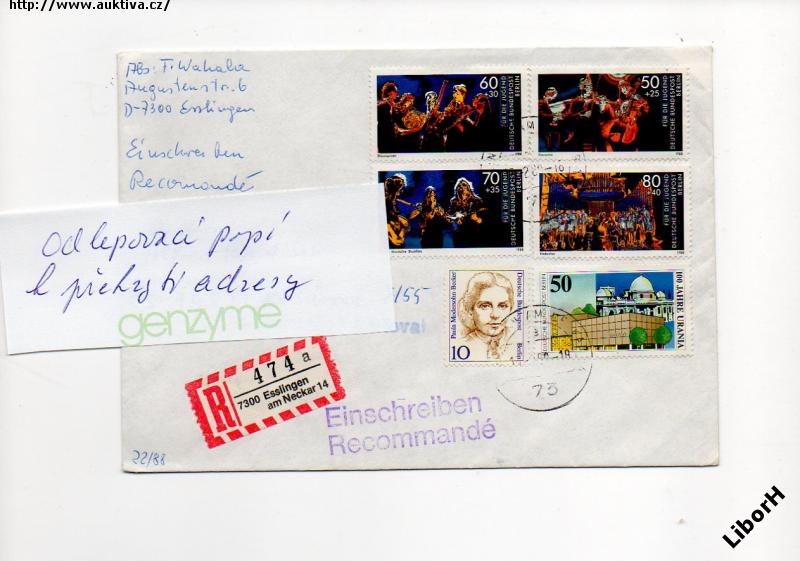 http://www.auktiva.cz/
Abs: F. Wahala
Augustenstr. 6
D-7300 Esslingen
Einschreiben
Recomandé
60
+30
FÜR DIE JUGEND
DEUTSCHE BUNDESPOST
BERLIN
1988
50
+25
FÜR DIE JUGEND
DEUTSCHE BUNDESPOST
BERLIN
1988
70
+35
FÜR DIE JUGEND
DEUTSCHE BUNDESPOST
BERLIN
1988
80
+40
FÜR DIE JUGEND
DEUTSCHE BUNDESPOST
BERLIN
1988
Odlepovací papí
k překrytí adresy
genzyme
/55
oval
10
Paula Modersohn-Becker
Deutsche Bundespost
Berlin
50
DEUTSCHE BUNDESPOST BERLIN
100 JAHRE URANIA
73
R
474 a
7300 Esslingen
am Neckar 14
Einschreiben
Recommandé
22/88
LiborH